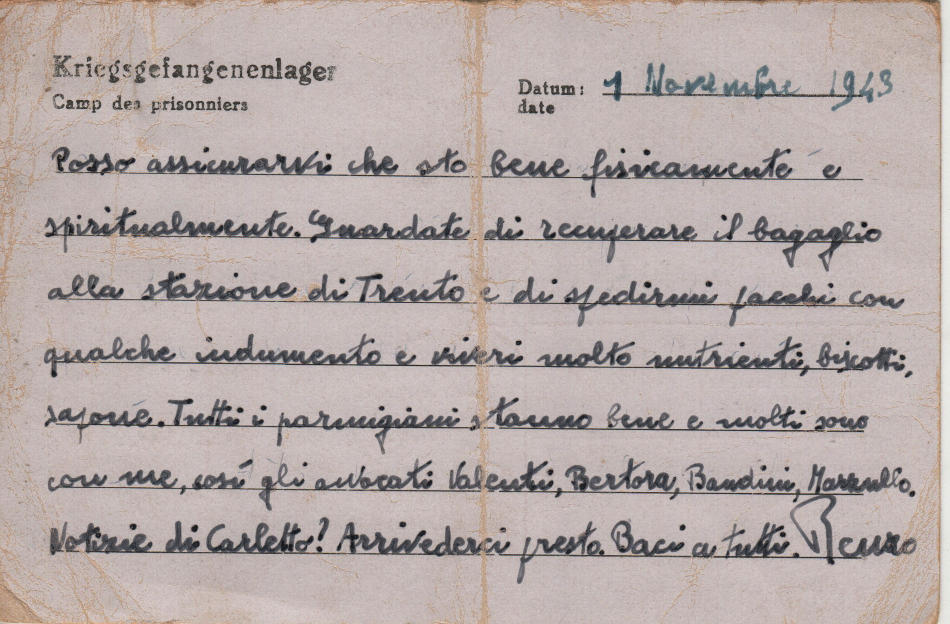 Kriegsgefangenenlager
Camp des prisonniers
Datum: 1 Novembre 1943
date
Posso assicurarvi che sto bene fisicamente e
spiritualmente. Guardate di recuperare il bagaglio
alla stazione di Trento e di spedirmi pacchi con
qualche indumento e viveri molto nutrienti, biscotti,
sapone. Tutti i parmigiani stanno bene e molti sono
con me, così gli avvocati Valenti, Bertora, Bandini, Marzullo.
Notizie di Carletto? Arrivederci presto. Baci a tutti. Renzo